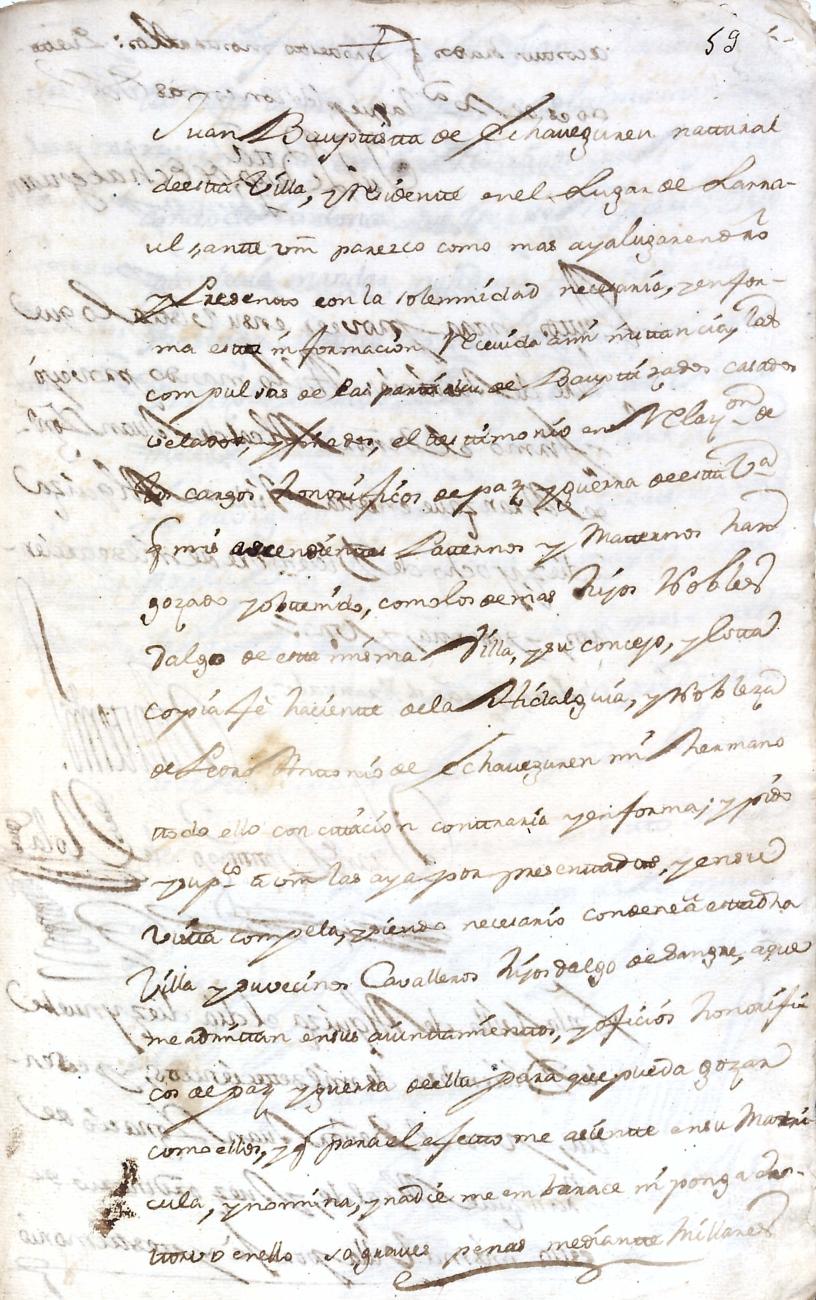 59
Juan Bauptistta de Echaveguren nattural
deestta Villa, y Residentte en el Lugar de Larra-
ul, antte vm parezco como mas aya lugar en dro
y Presento con la solemnidad necesaria, y en for-
ma estta informacion Recivida a mi instancia, las
compulsas de las parttidas de Bauptizados casados
velados, y finados, el testimonio en Relazon de
los cargos honorificos de paz y guerra de estta Va
q mis ascendientes Patternos y Matternos han
gozado y obtenido, como los demas hijos Nobles
dalgo de estta misma Villa, y su concejo, y la otta
copia fe hacientte de la Hidalguia, y Nobleza
de Pedro Anttonio de Echaveguren mi hermano
ttodo ello con cittacion conttraria y en forma; y pido
y supco a vm las aya por presenttadas, y en su
vistta compela, y siendo necesario condene a estta dha
Villa y su vecinos Cavalleros hijos dalgo de Sangre, a que
me admittan en sus aiunttamienttos, y oficios honorifi
cos de paz y guerra de ella para que pueda gozar
como ellos, y q para el efectto me asientte en su Mattri
cula, y nomina, y nadie me embarace ni ponga es-
ttorvo en ello so graves penas mediantte hillares